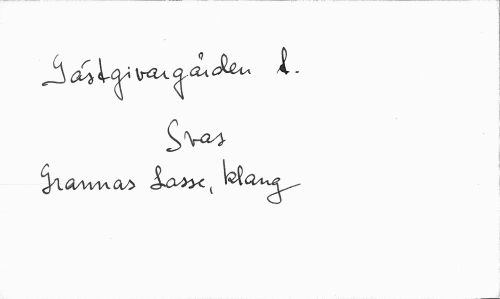 Gästgivargården 1.
Svas
Grannas Lasse, klang